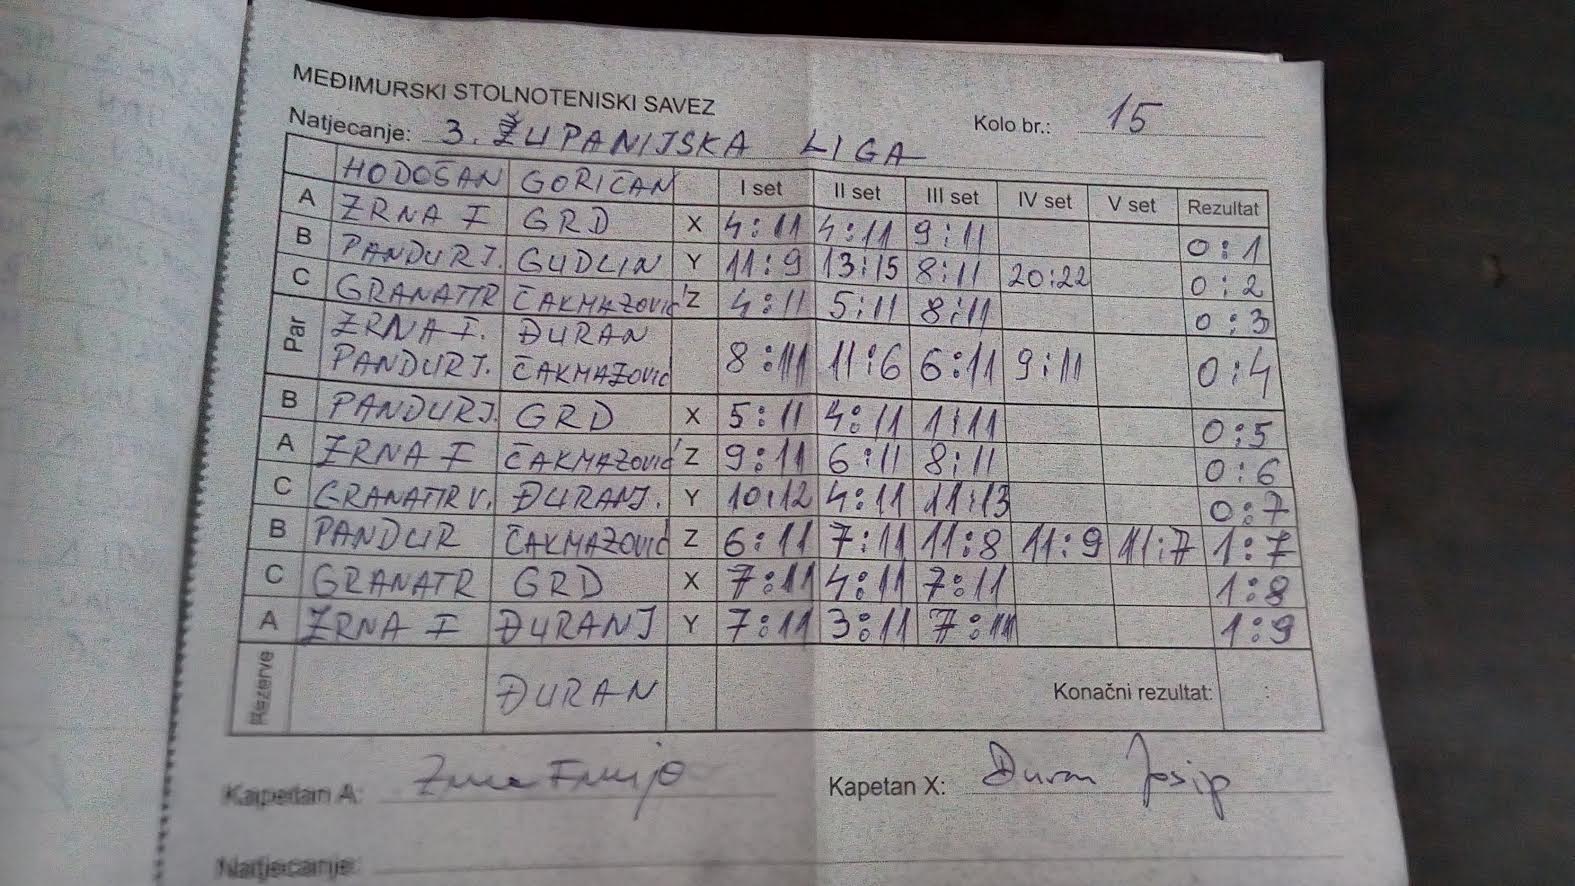 MEĐIMURSKI STOLNOTENISKI SAVEZ
Natjecanje: 3. ŽUPANIJSKA LIGA Kolo br.: 15
HODOŠAN GORIČAN I set II set III set IV set V set Rezultat
A ZRNA F GRD X 4:11 4:11 9:11 0:1
B PANDUR J. GUDLIN Y 11:9 13:15 8:11 20:22 0:2
C GRANATIR ČAKMAZOVIĆ Z 4:11 5:11 8:11 0:3
Par ZRNA F. ĐURAN
PANDUR J. ČAKMAZOVIĆ 8:11 11:6 6:11 9:11 0:4
B PANDUR J. GRD X 5:11 4:11 1:11 0:5
A ZRNA F ČAKMAZOVIĆ Z 9:11 6:11 8:11 0:6
C GRANATIR V. ĐURAN J. Y 10:12 4:11 11:13 0:7
B PANDUR ČAKMAZOVIĆ Z 6:11 7:11 11:8 11:9 11:7 1:7
C GRANATR GRD X 7:11 4:11 7:11 1:8
A ZRNA F ĐURAN J Y 7:11 3:11 7:11 1:9
Rezerve ĐURAN Konačni rezultat: :
Kapetan A: Kapetan X: Đuran Josip
Natjecanje: